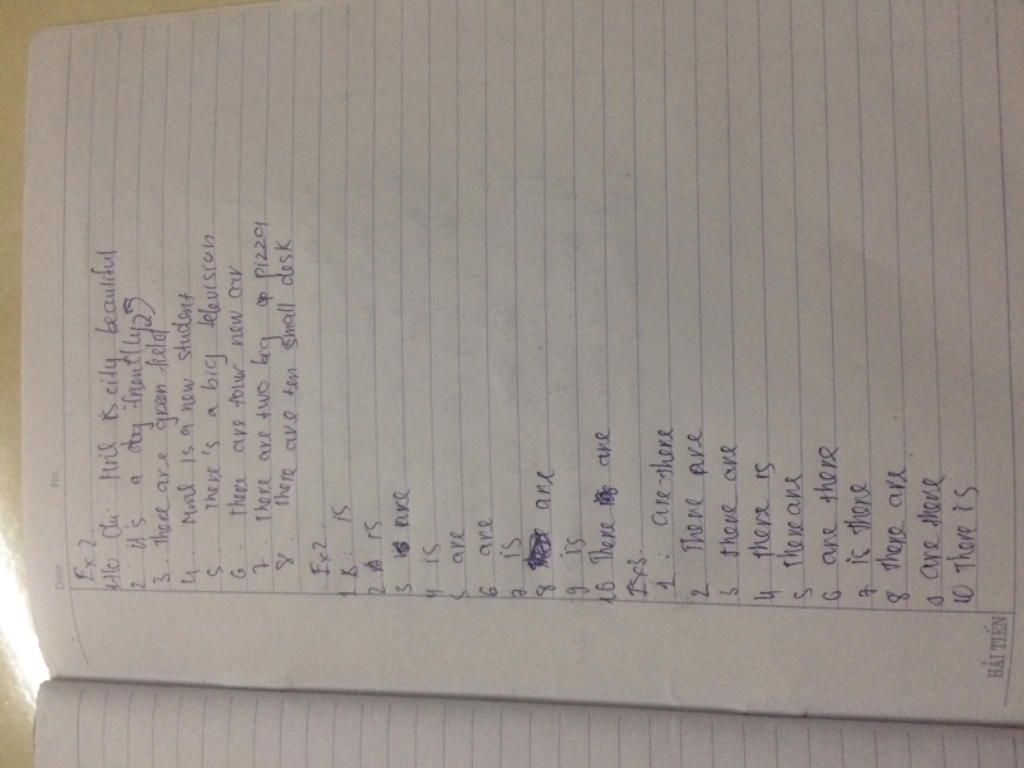 Date No.
Ex 2
1 Ho Chi Mih is city beautiful
2 it's a dog
3. there are green field
4 is a new student
5 there's a big television
6 there are new car
7 there are two big pizza
8 there are ten small desk
Ex2
1 is
2 is
3 are
4 is
5 are
6 are
7 is
8 are
9 is
10 There are
Ex3
1. are there
2 There are
3 there are
4 there is
5 there are
6 are there
7 is there
8 there are
9 are there
10 There is
HẢI TIẾN